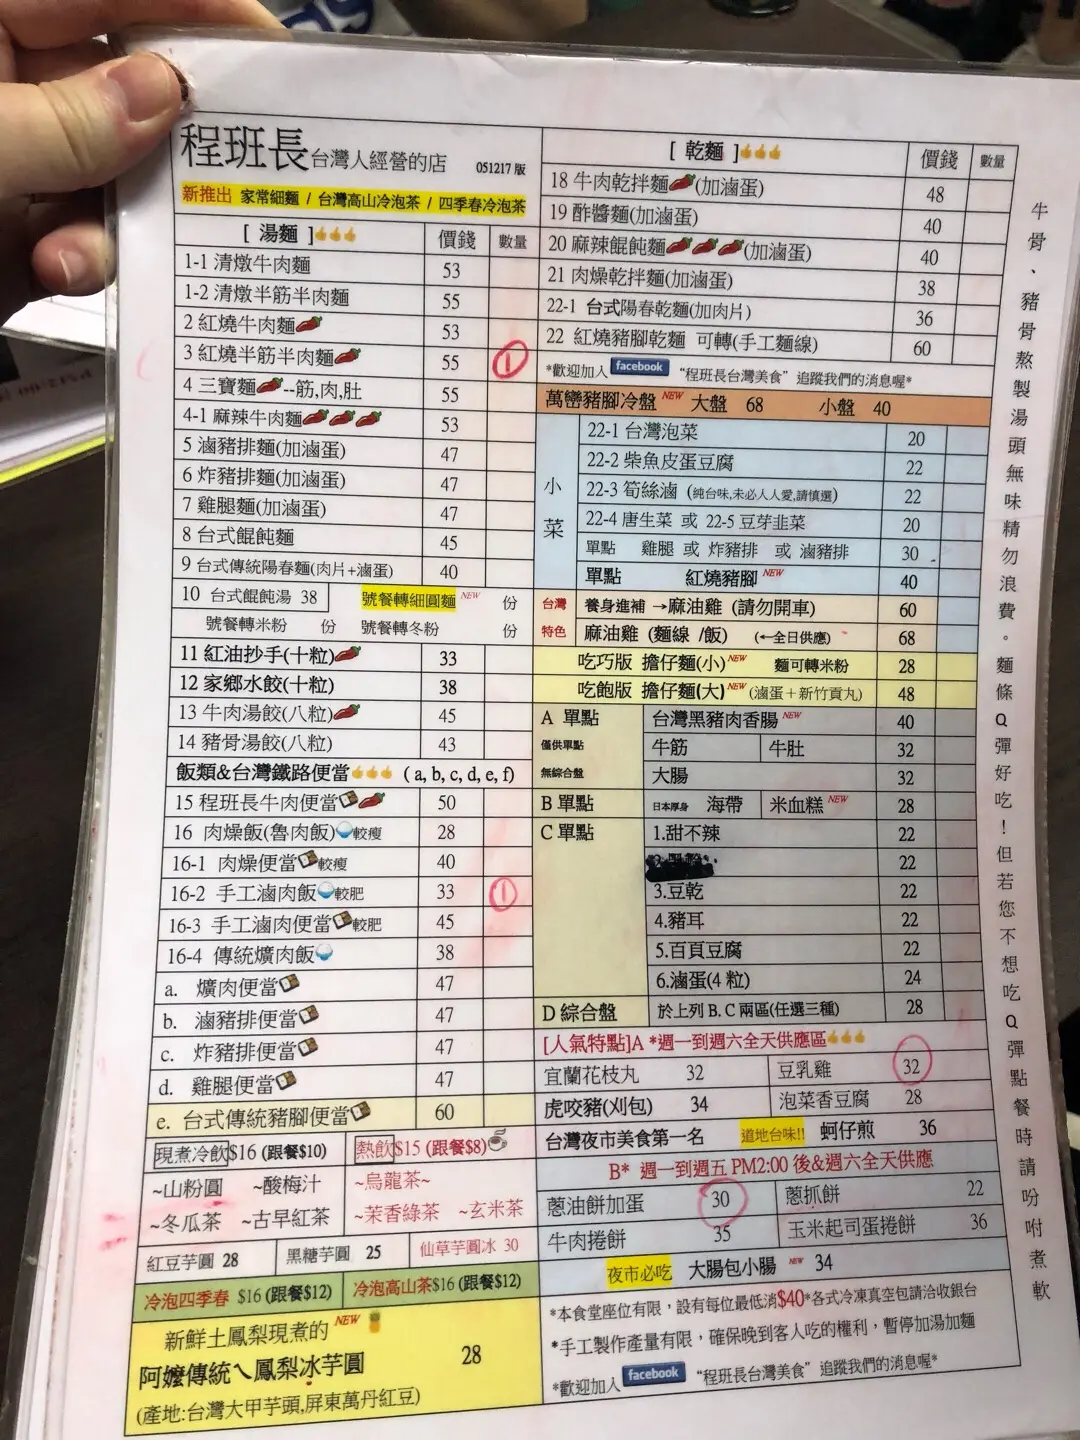 程班長台灣人經營的店 051217 版
新推出 家常細麵 / 台灣高山冷泡茶 / 四季春冷泡茶
[ 湯麵 ] 價錢 數量
1-1 清燉牛肉麵 53
1-2 清燉半筋半肉麵 55
2 紅燒牛肉麵 53
3 紅燒半筋半肉麵 55 1
4 三寶麵--筋,肉,肚 55
4-1 麻辣牛肉麵 53
5 滷豬排麵(加滷蛋) 47
6 炸豬排麵(加滷蛋) 47
7 雞腿麵(加滷蛋) 47
8 台式餛飩麵 45
9 台式傳統陽春麵(肉片+滷蛋) 40
10 台式餛飩湯 38 號餐轉細圓麵 NEW 份
號餐轉米粉 份 號餐轉冬粉 份
11 紅油抄手(十粒) 33
12 家鄉水餃(十粒) 38
13 牛肉湯餃(八粒) 45
14 豬骨湯餃(八粒) 43
飯類&台灣鐵路便當 ( a, b, c, d, e, f)
15 程班長牛肉便當 50
16 肉燥飯(魯肉飯)較瘦 28
16-1 肉燥便當較瘦 40
16-2 手工滷肉飯較肥 33 1
16-3 手工滷肉便當較肥 45
16-4 傳統爌肉飯 38
a. 爌肉便當 47
b. 滷豬排便當 47
c. 炸豬排便當 47
d. 雞腿便當 47
e. 台式傳統豬腳便當 60
現煮冷飲$16 (跟餐$10) 熱飲$15 (跟餐$8)
~山粉圓 ~酸梅汁 ~烏龍茶~
~冬瓜茶 ~古早紅茶 ~茉香綠茶 ~玄米茶
紅豆芋圓 28 黑糖芋圓 25 仙草芋圓冰 30
冷泡四季春 $16 (跟餐$12) 冷泡高山茶$16 (跟餐$12)
新鮮土鳳梨現煮的 NEW
阿嬤傳統ㄟ鳳梨冰芋圓 28
(產地:台灣大甲芋頭,屏東萬丹紅豆)
[ 乾麵 ] 價錢 數量
18 牛肉乾拌麵(加滷蛋) 48
19 酢醬麵(加滷蛋) 40
20 麻辣餛飩麵(加滷蛋) 40
21 肉燥乾拌麵(加滷蛋) 38
22-1 台式陽春乾麵(加肉片) 36
22 紅燒豬腳乾麵 可轉(手工麵線) 60
*歡迎加入 facebook "程班長台灣美食" 追蹤我們的消息喔*
萬巒豬腳冷盤 NEW 大盤 68 小盤 40
小菜
22-1 台灣泡菜 20
22-2 柴魚皮蛋豆腐 22
22-3 筍絲滷 (純台味,未必人人愛,請慎選) 22
22-4 唐生菜 或 22-5 豆芽韭菜 20
單點 雞腿 或 炸豬排 或 滷豬排 30
單點 紅燒豬腳 NEW 40
台灣 養身進補 →麻油雞 (請勿開車) 60
特色 麻油雞 (麵線 /飯) (←全日供應) 68
吃巧版 擔仔麵(小) NEW 麵可轉米粉 28
吃飽版 擔仔麵(大) NEW (滷蛋+新竹貢丸) 48
A 單點 台灣黑豬肉香腸 NEW 40
僅供單點 牛筋 牛肚 32
無綜合盤 大腸 32
B 單點 日本厚身 海帶 米血糕 NEW 28
C 單點 1.甜不辣 22
22
3.豆乾 22
4.豬耳 22
5.百頁豆腐 22
6.滷蛋(4 粒) 24
D 綜合盤 於上列 B. C 兩區(任選三種) 28
[人氣特點]A *週一到週六全天供應區
宜蘭花枝丸 32 豆乳雞 32
虎咬豬(刈包) 34 泡菜香豆腐 28
台灣夜市美食第一名 道地台味!! 蚵仔煎 36
B* 週一到週五 PM2:00 後&週六全天供應
蔥油餅加蛋 30 蔥抓餅 22
牛肉捲餅 35 玉米起司蛋捲餅 36
夜市必吃 大腸包小腸 NEW 34
*本食堂座位有限，設有每位最低消$40*各式冷凍真空包請洽收銀台
*手工製作產量有限，確保晚到客人吃的權利，暫停加湯加麵
*歡迎加入 facebook "程班長台灣美食" 追蹤我們的消息喔*
牛骨、豬骨熬製湯頭無味精勿浪費。麵條Q彈好吃!但若您不想吃Q彈點餐時請吩咐煮軟